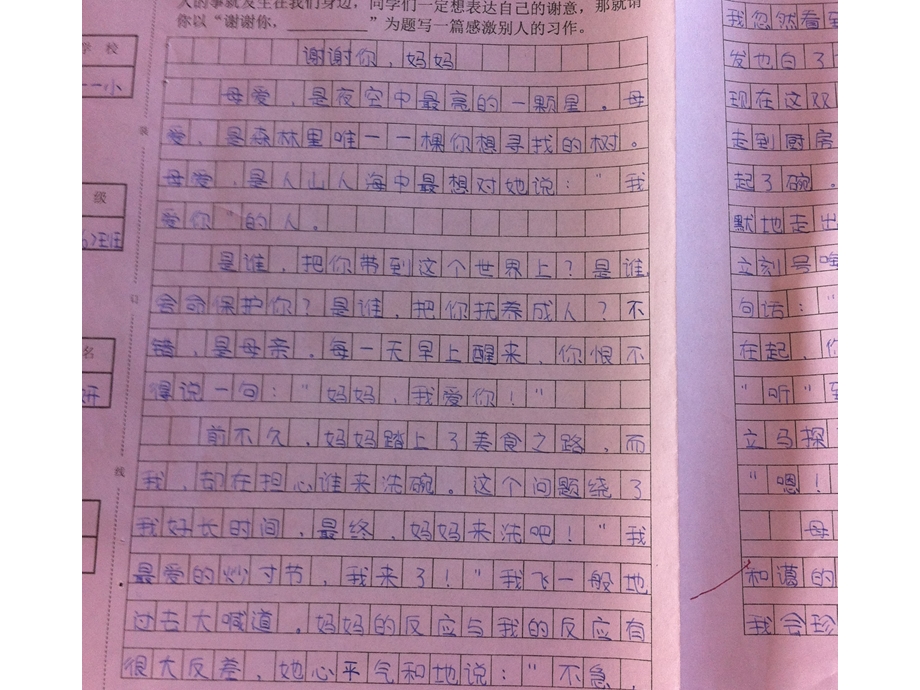 人的事就发生在我们身边，同学们一定想表达自己的谢意，那就请
你以“谢谢你，________”为题写一篇感激别人的习作。
学 校
一小
级
班
名
装
订
线
谢谢你，妈妈
母爱，是夜空中最亮的一颗星。母
爱，是森林里唯一一棵你想寻找的树。
母爱，是人山人海中最想对她说：“我
爱你”的人。
是谁，把你带到这个世界上？是谁，
舍命保护你？是谁，把你抚养成人？不
错，是母亲。每一天早上醒来，你恨不
得说一句：“妈妈，我爱你！”
前不久，妈妈踏上了美食之路，而
我，却在担心谁来洗碗。这个问题绕了
我好长时间，最终，妈妈来洗吧！“我
最爱的炒寸节，我来了！”我飞一般地
过去大喊道。妈妈的反应与我的反应有
很大反差，她心平气和地说：“不急，
我忽然看到
发也白了
现在这双
走到厨房
起了碗。
默地走出
立刻号
句话：“
在起，你
“听”到
立马探
“嗯！
母
和蔼的
我会珍